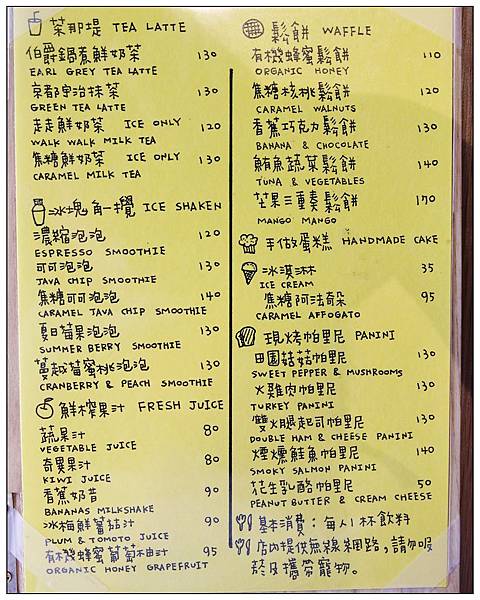 茶那堤 TEA LATTE
伯爵鍋煮鮮奶茶 130
EARL GREY TEA LATTE
京都宇治抹茶 130
GREEN TEA LATTE
走走鮮奶茶 ICE ONLY 120
WALK WALK MILK TEA
焦糖鮮奶茶 ICE ONLY 130
CARAMEL MILK TEA
冰塊角一攪 ICE SHAKEN
濃縮泡泡 120
ESPRESSO SMOOTHIE
可可泡泡 130
JAVA CHIP SMOOTHIE
焦糖可可泡泡 140
CARAMEL JAVA CHIP SMOOTHIE
夏日莓果泡泡 130
SUMMER BERRY SMOOTHIE
蔓越莓蜜桃泡泡 130
CRANBERRY & PEACH SMOOTHIE
鮮榨果汁 FRESH JUICE
蔬果汁 80
VEGETABLE JUICE
奇異果汁 80
KIWI JUICE
香蕉奶昔 90
BANANAS MILKSHAKE
冰梅鮮蕃茄汁 90
PLUM & TOMOTO JUICE
有機蜂蜜葡萄柚汁 95
ORGANIC HONEY GRAPEFRUIT
鬆餅 WAFFLE
有機蜂蜜鬆餅 110
ORGANIC HONEY
焦糖核桃鬆餅 120
CARAMEL WALNUTS
香蕉巧克力鬆餅 130
BANANA & CHOCOLATE
鮪魚蔬菜鬆餅 140
TUNA & VEGETABLES
芒果三重奏鬆餅 170
MANGO MANGO
手做蛋糕 HANDMADE CAKE
冰淇淋 35
ICE CREAM
焦糖阿法奇朵 95
CARAMEL AFFOGATO
現烤帕里尼 PANINI
田園菇菇帕里尼 130
SWEET PEPPER & MUSHROOMS
火雞肉帕里尼 130
TURKEY PANINI
雙火腿起司帕里尼 130
DOUBLE HAM & CHEESE PANINI
煙燻鮭魚帕里尼 140
SMOKY SALMON PANINI
花生乳酪帕里尼 50
PEANUT BUTTER & CREAM CHEESE
基本消費：每人1杯飲料
店內提供無線網路，請勿吸
菸及攜帶寵物。